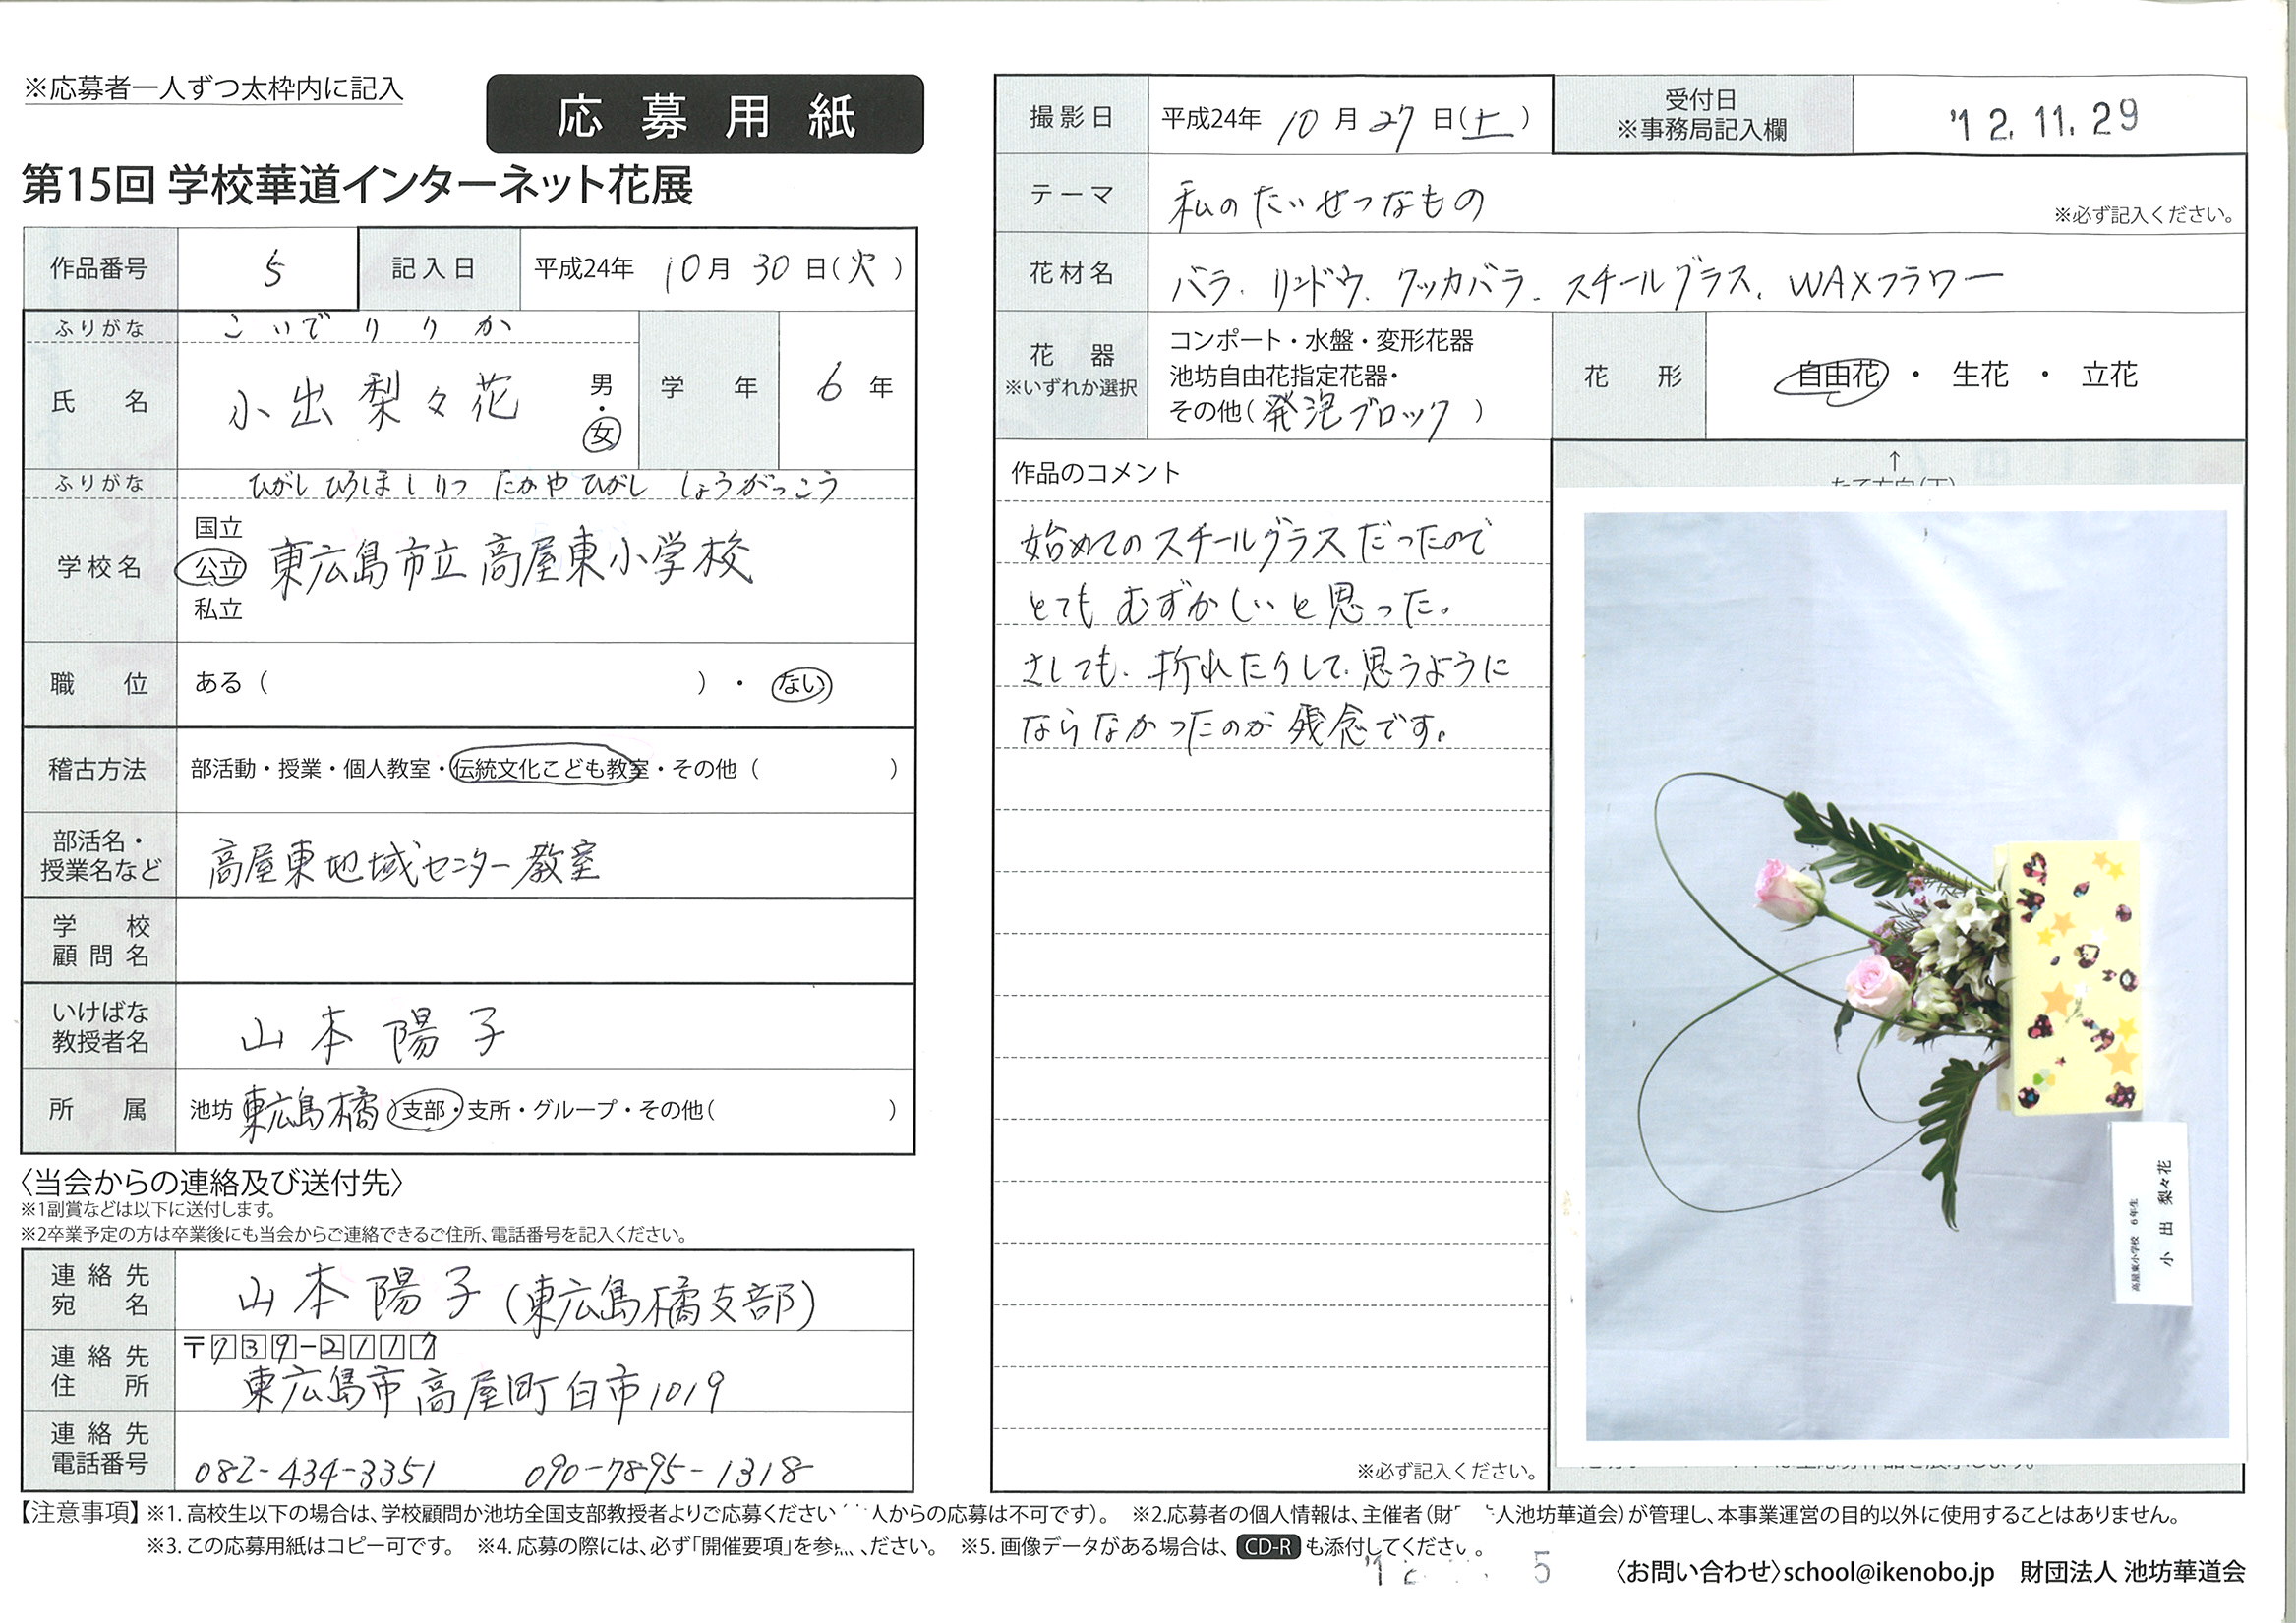 ※応募者一人ずつ太枠内に記入
応募用紙
第15回 学校華道インターネット花展
作品番号 5 記入日 平成24年 10月 30日(火)
ふりがな こいで りりか
氏名 小出 梨々花 男・女 学年 6年
ふりがな ひがし ひろしましりつ たかや ひがし しょうがっこう
学校名 国立 公立 私立 東広島市立高屋東小学校
職位 ある( )・ない
稽古方法 部活動・授業・個人教室・伝統文化こども教室・その他( )
部活名・授業名など 高屋東地域センター教室
学校顧問名
いけばな教授者名 山本陽子
所属 池坊 東広島橘 支部・支所・グループ・その他( )
〈当会からの連絡及び送付先〉
※1副賞などは以下に送付します。
※2卒業予定の方は卒業後にも当会からご連絡できるご住所、電話番号を記入ください。
連絡先宛名 山本陽子(東広島橘支部)
連絡先住所 〒739-2117
東広島市高屋町白市1019
連絡先電話番号 082-434-3351 090-7895-1318
撮影日 平成24年 10月27日(土) 受付日 ※事務局記入欄 '12.11.29
テーマ 私のたいせつなもの ※必ず記入ください。
花材名 バラ、リンドウ、クッカバラ、スチールグラス、WAXフラワー
花器 ※いずれか選択 コンポート・水盤・変形花器
池坊自由花指定花器・
その他(発泡ブロック)
花形 自由花・生花・立花
作品のコメント
始めてのスチールグラスだったので
とてもむずかしいと思った。
さしても、折れたりして、思うように
ならなかったのが残念です。
※必ず記入ください。
↑
高屋東小学校 6年生
小出 梨々花
【注意事項】※1.高校生以下の場合は、学校顧問か池坊全国支部教授者よりご応募ください 人からの応募は不可です)。 ※2.応募者の個人情報は、主催者(財 人池坊華道会)が管理し、本事業運営の目的以外に使用することはありません。
※3.この応募用紙はコピー可です。 ※4.応募の際には、必ず「開催要項」を参 ください。 ※5.画像データがある場合は、CD-Rも添付してください。
5
〈お問い合わせ〉school@ikenobo.jp 財団法人 池坊華道会